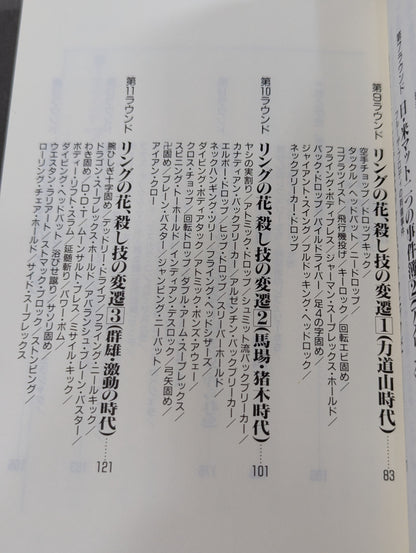 第9ラウンド リングの花、殺し技の変遷[1](力道山時代)……83
空手チョップ／ドロップキック
タックル／ヘッドバット／ニードロップ／
コブラツイスト／飛行機投げ／キーロック／回転エビ固め／
フライング・ボディプレス／ジャーマン・スープレックス・ホールド／
バック・ドロップ／パイルドライバー／足4の字固め／
ジャイアント・スイング／ブルドッキング・ヘッドロック／
ネックブリーカードロップ
第10ラウンド リングの花、殺し技の変遷[2](馬場・猪木時代)……101
ヤシの実割り／アトミック・ドロップ／シュミット流バックブリーカー／
カナディアン・バックブリーカー／アルゼンチン・バックブリーカー／
エルボー・ドロップ／ヒップ・ドロップ／スリーパーホールド／
ネックハンギング・ツリー／フライング・ヘッドシザーズ／
ダイビング・ボディアタック／アトミック・ボンズ・アウェー／
クロス・チョップ／回転ドロップ／ダブル・アーム・スープレックス／
スピニング・トーホールド／インディアン・デスロック／弓矢固め／
卍固め／ブレーン・バスター／ジャンピング・ニーパット／
アイアン・クロー
第11ラウンド リングの花、殺し技の変遷[3](群雄 激動の時代)……121
腕ひしぎ十字固め／デッドリー・ドライブ／フライング・ニールキック／
ドラゴン・スープレックス・ホールド／アバランシュ・ブレーン・バスター／
わき固め／ローリング・クラッチ・ホールド／
ボディー・リフト・スラム／ムーンサルト・プレス／ミサイル・キック／
ダイビング・ヘッドバット／延髄斬り／パワー・ボム／
ウエスタン・ラリアート／浴びせ蹴り／サソリ固め／
ローリング・チェア・ホールド／ストマック・ブロック／ストンピング／
サイド・スープレックス